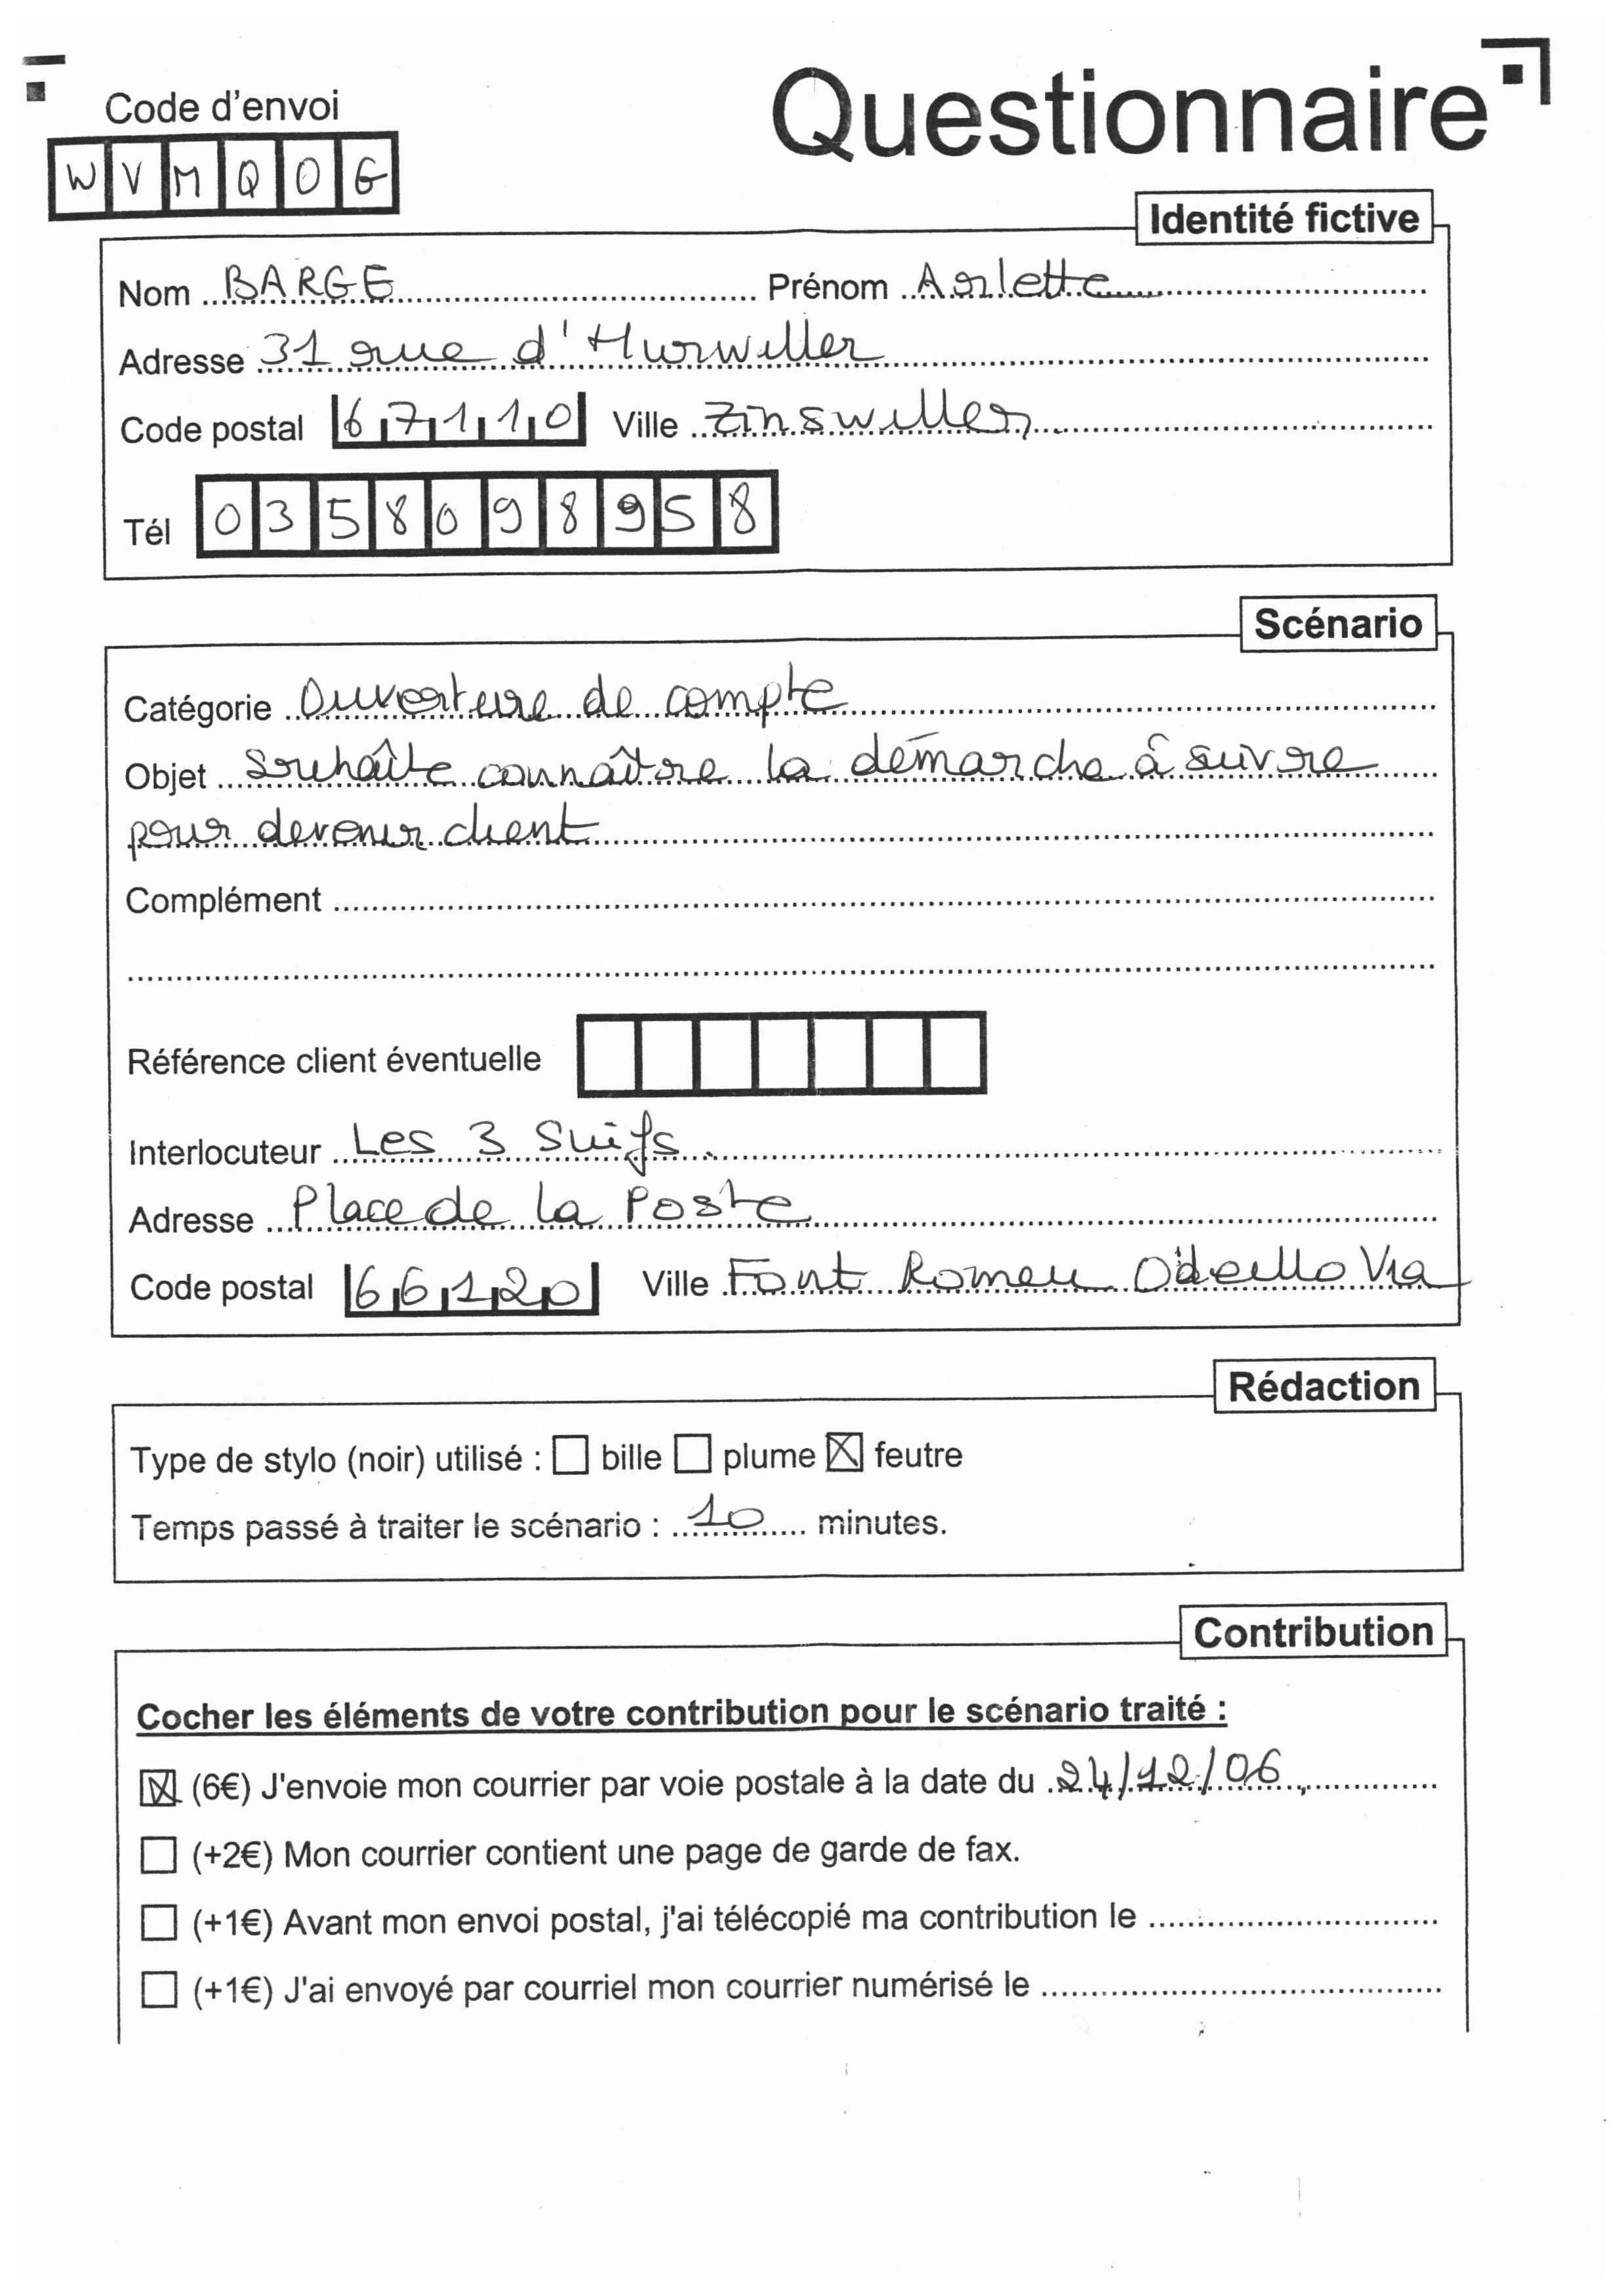 Questionnaire
Code d'envoi
W V M Q O G
Identité fictive
Nom BARGE Prénom Arlette
Adresse 31 rue d'Hurwiller
Code postal 67110 Ville Zinswiller
Tél 0358098958
Scénario
Catégorie Ouverture de compte
Objet Souhaîte connaître la démarche à suivre
pour devenir client
Complément
Référence client éventuelle
Interlocuteur Les 3 Suifs
Adresse Place de la Poste
Code postal 66120 Ville Font Romeu Odeillo Via
Rédaction
Type de stylo (noir) utilisé : ☐ bille ☐ plume ☒ feutre
Temps passé à traiter le scénario : 10 minutes.
Contribution
Cocher les éléments de votre contribution pour le scénario traité :
☒ (6€) J'envoie mon courrier par voie postale à la date du 24/12/06
☐ (+2€) Mon courrier contient une page de garde de fax.
☐ (+1€) Avant mon envoi postal, j'ai télécopié ma contribution le
☐ (+1€) J'ai envoyé par courriel mon courrier numérisé le